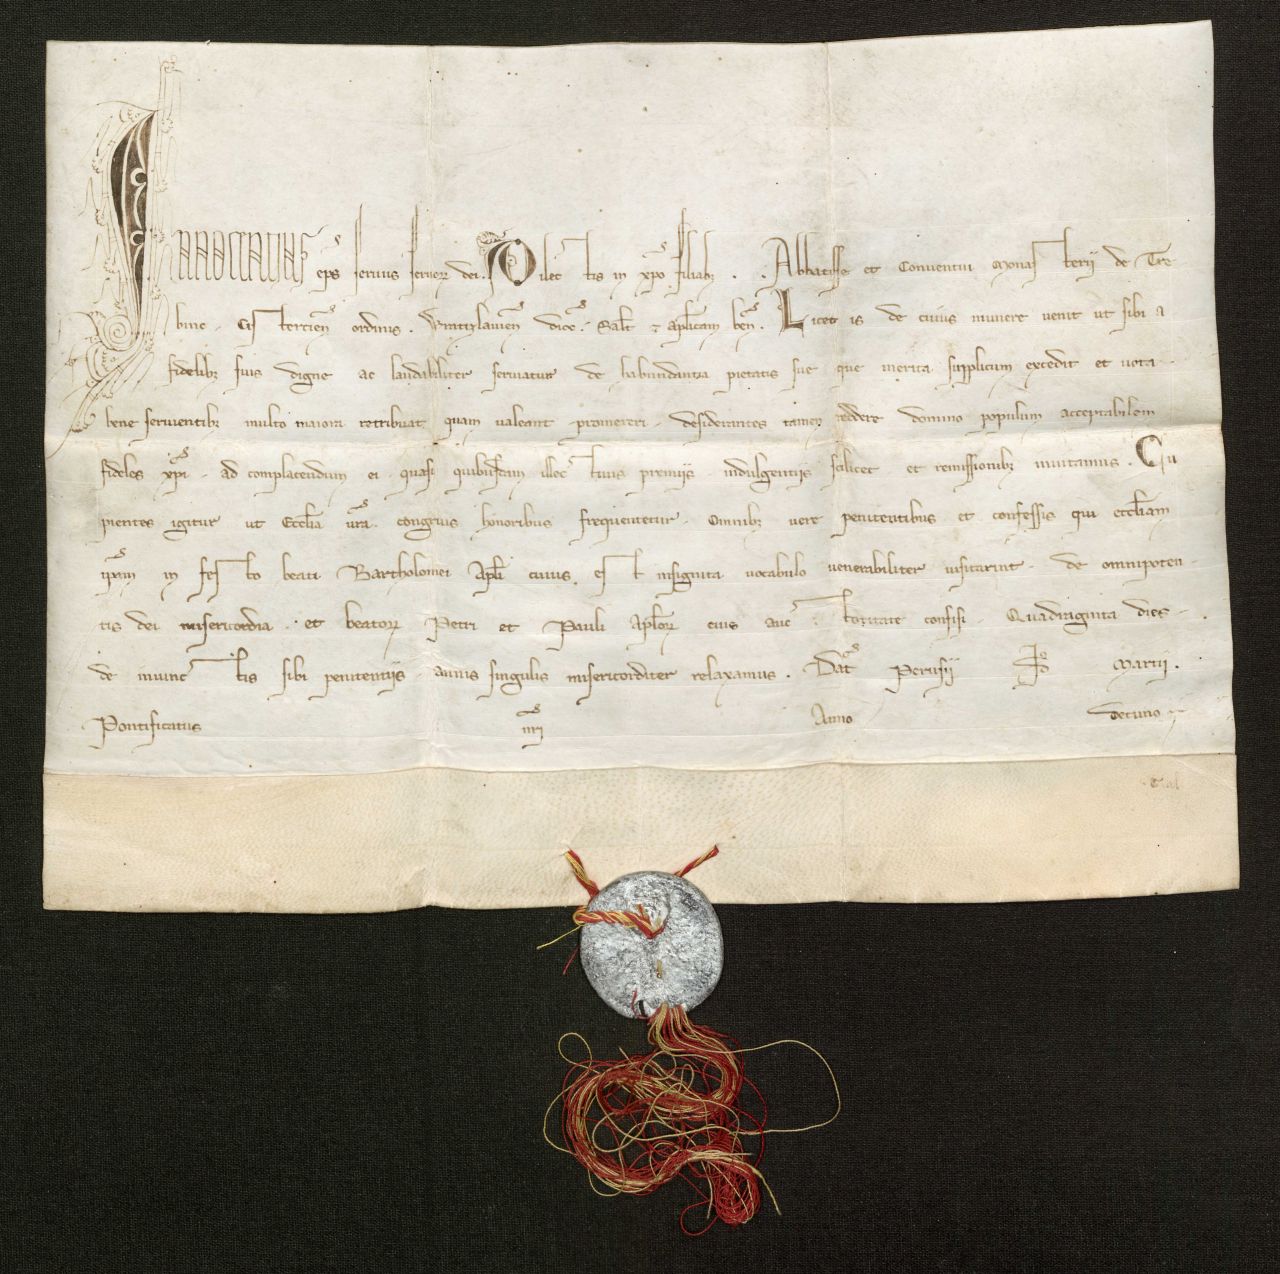 INNOCENTIUS eps servus servor dei. Dilectis in xpo filiabz .. Abbatisse et Conventui Monasterii de Tre
binc. Cistercien ordinis. Wratizlavien dioc. Salt et aplicam ben. Licet is de cuius munere venit ut sibi a
fidelibz suis digne ac laudabiliter serviatur de habundantia pietatis sue que merita supplicum excedit et vota
bene servientibz multo maiora retribuat quam valeant promereri. desiderantes tamen reddere domino populum acceptabilem
fideles xpi. ad complacendum ei. quasi quibusdam illectivis premiis. indulgentiis scilicet et remissionibz invitamus. Cu
pientes igitur ut Ecclia vra congruis honoribus frequentetur. Omnibz vere penitentibus et confessis qui eccliam
ipsam in festo beati Bartholomei Apli cuius est insignita vocabulo venerabiliter visitarint. de omnipoten
tis dei misericordia. et beator Petri et Pauli Aplor eius auctoritate confisi. Quadraginta dies.
de iniunctis sibi penitentiis. annis singulis misericorditer relaxamus. Dat Perusii Martii.
Pontificatus nri Anno Decimo